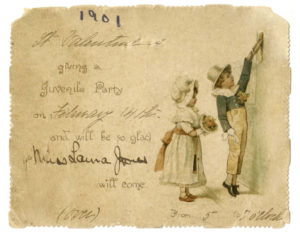 1901
St Valentine is
giving a
Juvenile Party
on February 14th.
and will be so glad
if Miss Laura Jones
will come.
From 5 to 7 o'clock